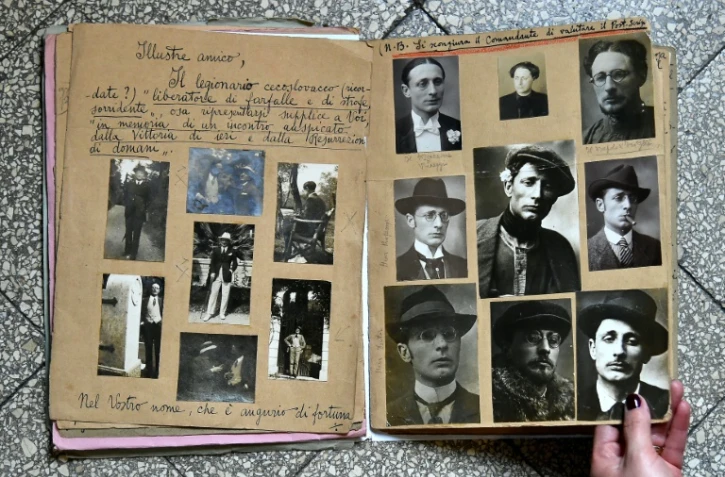 Illustre amico,
Il legionario cecoslovacco (ricor-
date?) "liberatore di farfalle e di strofe
sorridente", osa ripresentarsi supplice a Voi,
"in memoria di un incontro auspicato
dalla Vittoria di ieri e dalla Resurrezione
di domani".
Nel Vostro nome, che è augurio di fortuna
N.B. Si scongiura il Comandante di valutare il Post-Scrip